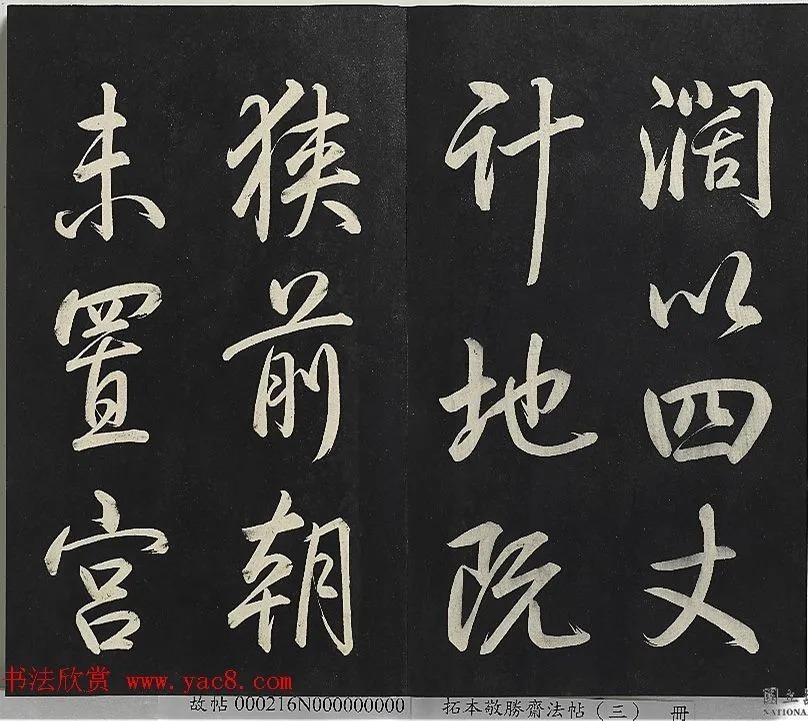 濶以四丈
計地阨
狹前朝
未置宮
书法欣赏 www.yac8.com
故帖000216N000000000
拓本敬勝齋法帖（三） 冊
國立
NATIONA